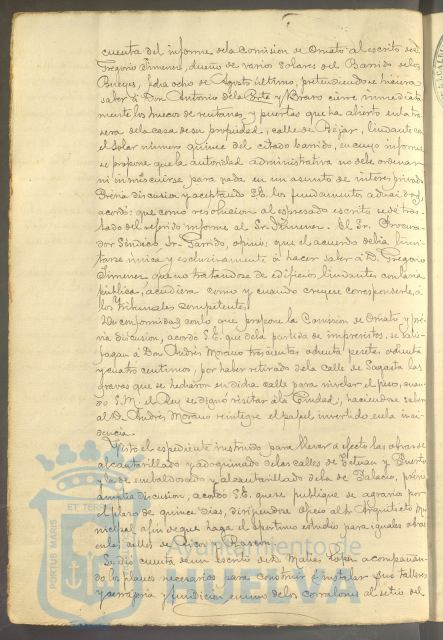 cuenta del informe de la Comision de Ornato al escrito de D.
Gregorio Jimenez, dueño de varios solares del Barrido de los
Bueyes, fecha ocho de Agosto último, pretendiendo se hiciera
saber á Don Antonio de la Corte y Bravo cierre inmediata
mente los huecos de ventanas y puertas que ha abierto en la tra
sera de la casa de su propiedad, calle de Béjar, lindante con
el solar número quince del citado barrido, en cuyo informe
se propone que la autoridad administrativa no debe ordenar
ni inmiscuirse para nada en un asunto de interés privado.
Prévia discusion y aceptando S.E. los fundamentos aducidos,
acordó: que como resolucion al espresado escrito se dé tras
lado del referido informe al Sr. Jimenez. El Sr. Procura
dor Síndico, Sr. Garrido, opinó: que el acuerdo debia limi
tarse única y esclusivamente á hacer saber á D. Gregorio
Jimenez que no tratandose de edificios lindantes con la via
pública, acudiera como y cuando creyese corresponderle, á
los Tribunales competentes.
De conformidad con lo que propone la Comision de Ornato y pré
via discusion, acordó S.E. que de la partida de imprevistos, se satis
fagan á Don Andrés Moreno trescientas ochenta pesetas ochenta
y cuatro centimos, por haber retirado de la calle de Sagasta las
gravas que se hecharon en dicha calle para nivelar el piso, cuan
do S.M. el Rey se dignó visitar á la Ciudad, haciendose saber
al D. Andrés Moreno reintegre el papel invertido en la inci
dencia.
Visto el espediente instruido para llevar á efecto las obras de
alcantarillado y adoquinado de las calles de Tetuan y Puerto
y la de embaldosado y alcantarillado de la de Palacio, prévia
ámplia discusion, acordó S.E. que se publique de agravios por
el plazo de quince dias, dirigiendose oficio al Sr. Arquitecto Mu
nicipal á fin de que haga el oportuno estudio para iguales obras
en las calles de Rico y Rascon.
Se dió cuenta de un escrito de D. Matias Lopez acompañan
do los planos necesarios para construir é instalar sus talleres
y cerrageria y fundicion en uno de los corralones al sitio del
PORTUS MARIS
ET TERRAE
Ayuntamiento de
HUELVA